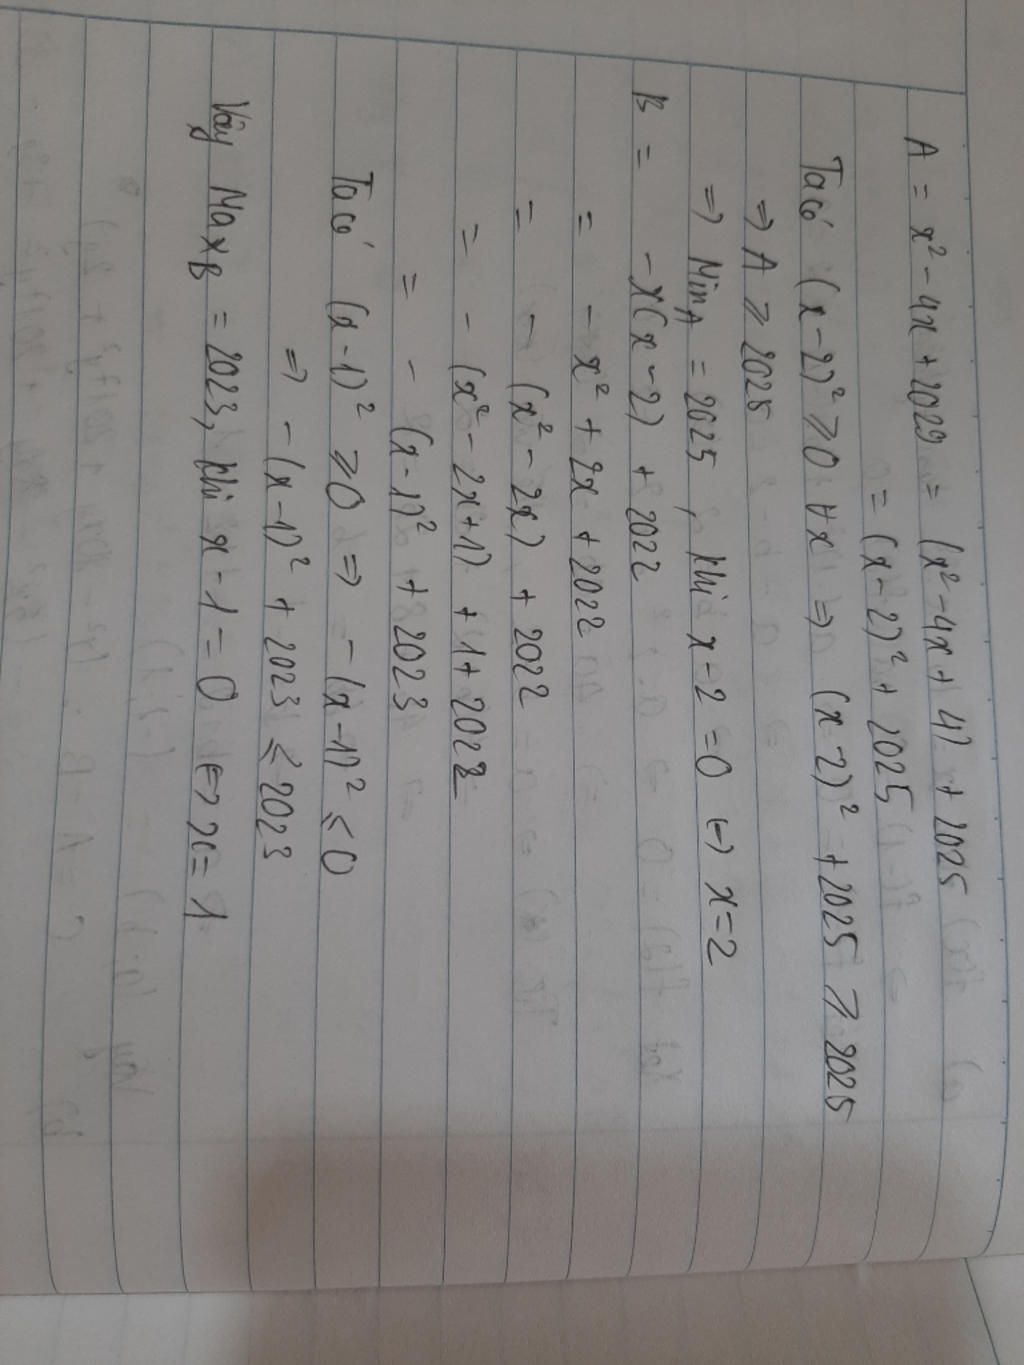 A = x² - 4x + 2029 = (x² - 4x + 4) + 2025
= (x - 2)² + 2025
Ta có (x - 2)² ≥ 0 ∀x ⇒ (x - 2)² + 2025 ≥ 2025
⇒ A ≥ 2025
⇒ Min_A = 2025, khi x - 2 = 0 ↔ x = 2
B = - x(x - 2) + 2022
= - x² + 2x + 2022
= - (x² - 2x) + 2022
= - (x² - 2x + 1) + 1 + 2022
= - (x - 1)² + 2023
Ta có (x - 1)² ≥ 0 ⇒ - (x - 1)² ≤ 0
⇒ - (x - 1)² + 2023 ≤ 2023
Vậy Max_B = 2023, khi x - 1 = 0 ↔ x = 1